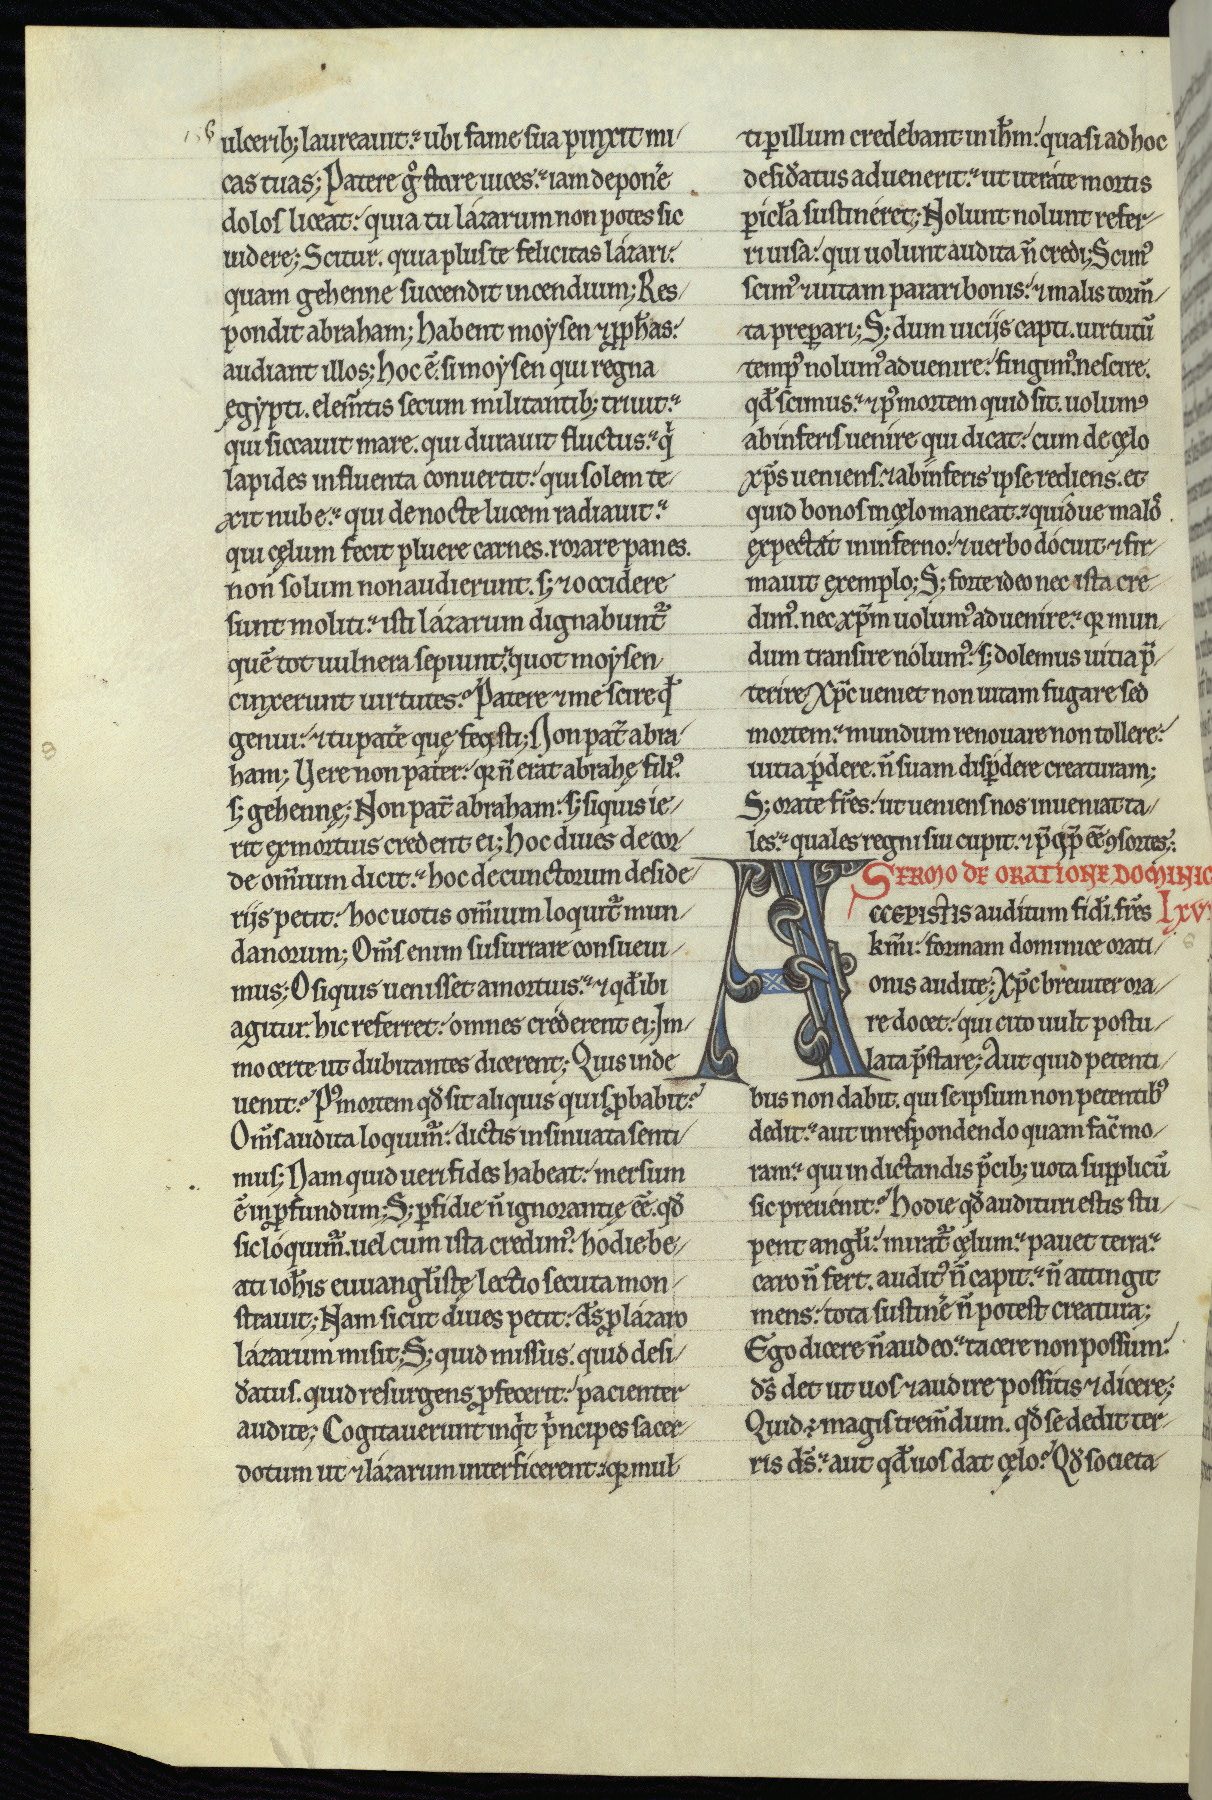 ulcerib; laureauit. ubi fame sua pinxit mi/
cas tuas; Patere g̊ stare uices. iam deponẽ
dolos liceat. quia tu lázarum non potes sic
uidere; Scitur. quia plus te felicitas lázari.
quam gehenne succendit incendium; Res/
pondit abraham; habent moysen ⁊ ꝓph̃as.
audiant illos; hoc ẽ. si moysen qui regna
egypti. elem̃tis secum militantib; triuit.
qui siccauit mare. qui durauit fluctus. q̇
lapides influenta conuertit. qui solem te/
xit nube. qui de nocte lucem radiauit.
qui cęlum fecit pluere carnes. rorare panes.
non solum non audierunt. s; ⁊ occidere
sunt moliti. isti lázarum dignabunt᷑
quẽ tot uulnera sepiunt. quot moysen
cinxerunt uirtutes. Patere ⁊ me scire qđ
genui. ⁊ tu patẽ quę fecisti; Non pat̃ abra
ham; Uere non pater. qꝛ ñ erat abrahę fili᷒
s; gehennę; Non pat̃ abraham. s; siquis ie/
rit ex mortuis credent ei; hoc diues de cor
de om̃ium dicit. hoc de cunctorum deside
rijs petit. hoc uotis om̃ium loquit᷑ mun/
danorum; Om̃s enim susurrare consueui/
mus; O siquis uenisset a mortuis. ⁊ qđ ibi
agitur. hic referret. omnes créderent ei; Im/
mo certe ut dubitantes dicerent; Quis inde
uenit. P᷒ mortem qđ sit aliquis quis ꝓbabit.
Om̃s audita loquim᷑. dictis insinuata senti/
mus; Nam quid ueri fides habeat. mersum
ẽ in ꝓfundum; S; ꝑfidie ñ ignorantię eẽ. qđ
sic lóquim᷑. uel cum ista credim᷒. hodie be/
ati ioh̃is euuangl̃istę lectio secuta mon/
strauit; Nam sicut diues petit. d̃s ꝓ lázaro
lázarum misit; S; quid missus. quid desi/
đatus. quid resurgens ꝓfecerit. pacienter
audite; Cogitauerunt inq̇t p̃ncipes sacer/
dotum ut ⁊ lázarum interficerent. qꝛ mul
ti ꝑ illum credebant in ih̃m. quasi ad hoc
desiđatus aduenerit. ut iteráte mortis
ꝑicl̃a sustinéret; Nolunt nolunt refer/
ri uisa. qui uolunt audita ñ credi; Scim᷒
scim᷒ ⁊ uitam parari bonis. ⁊ malis torm̃/
ta preꝑari; S; dum uicijs capti. uirtutũ
temp᷒ nolum᷒ aduenire. fingim᷒ nescire.
qđ scimus. ⁊ p᷒ mortem quid sit. uolum᷒
ab inferis uenire qui dicat. cum de cęlo
xp̃s ueniens. ⁊ ab inferis ipse rediens. et
quid bonos in cęlo maneat. quid ue malo᷒
expectát in inferno. ⁊ uerbo dócuit ⁊ fir/
mauit exemplo; S; forte ideo nec ista cre
dim᷒. nec xp̃m uolum᷒ aduenire. qꝛ mun/
dum transire nólum᷒. s; dolemus uitia p̃/
terire Xp̃c ueniet non uitam fugare sed
mortem. mundum renouare non tollere.
uitia ꝑdere. ñ suam disꝑdere creaturam;
S; orate fr̃es. ut ueniens nos inueniat ta/
les. quales regni sui cupit. ⁊ p̃cip̃ eẽ ꝯsortes.
SERMO DE ORATIONE DOMINIC
ACCEPISTIS auditum fidi. fr̃es Lxv
km̃i. formam dominice orati/
onis audite; Xp̃c breuiter ora/
re docet. qui cito uult postu/
lata p̃stare; Aut quid petenti/
bus non dabit. qui se ipsum non petentib᷒
dedit. aut in respondendo quam fac̃ mo/
ram. qui in dictandis p̃cib; uota supplicũ
sic preuénit. hodie qđ audituri estis stu/
pent angl̃i. mirat᷑ cęlum. pauet terra.
caro ñ fert. audit᷒ ñ capit. ñ attingit
mens. tota sustinẽ ñ potest creatura;
Ego dicere ñ audeo. tacere non possum.
d̃s det ut uos ⁊ audire possitis ⁊ dicere;
Quid ÷ magis trem̃dum. qđ se dedit ter/
ris d̃s. aut qđ uos dat cęlo. Qđ societa